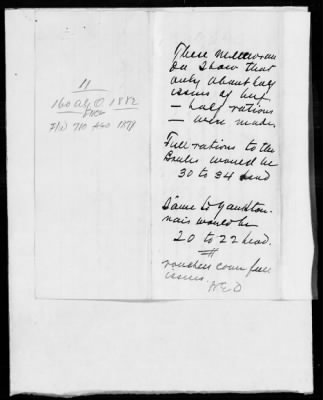 11
160 Ag O. 1882
Encs
F/W 710 AGO 1878
These memoran
da show that
only about half
issues of beef
— half rations
— were made
Full rations to the
Brules would be
30 to 34 head
Same to Yankton-
nais would be
20 to 22 head.
vouchers cover full
issues.